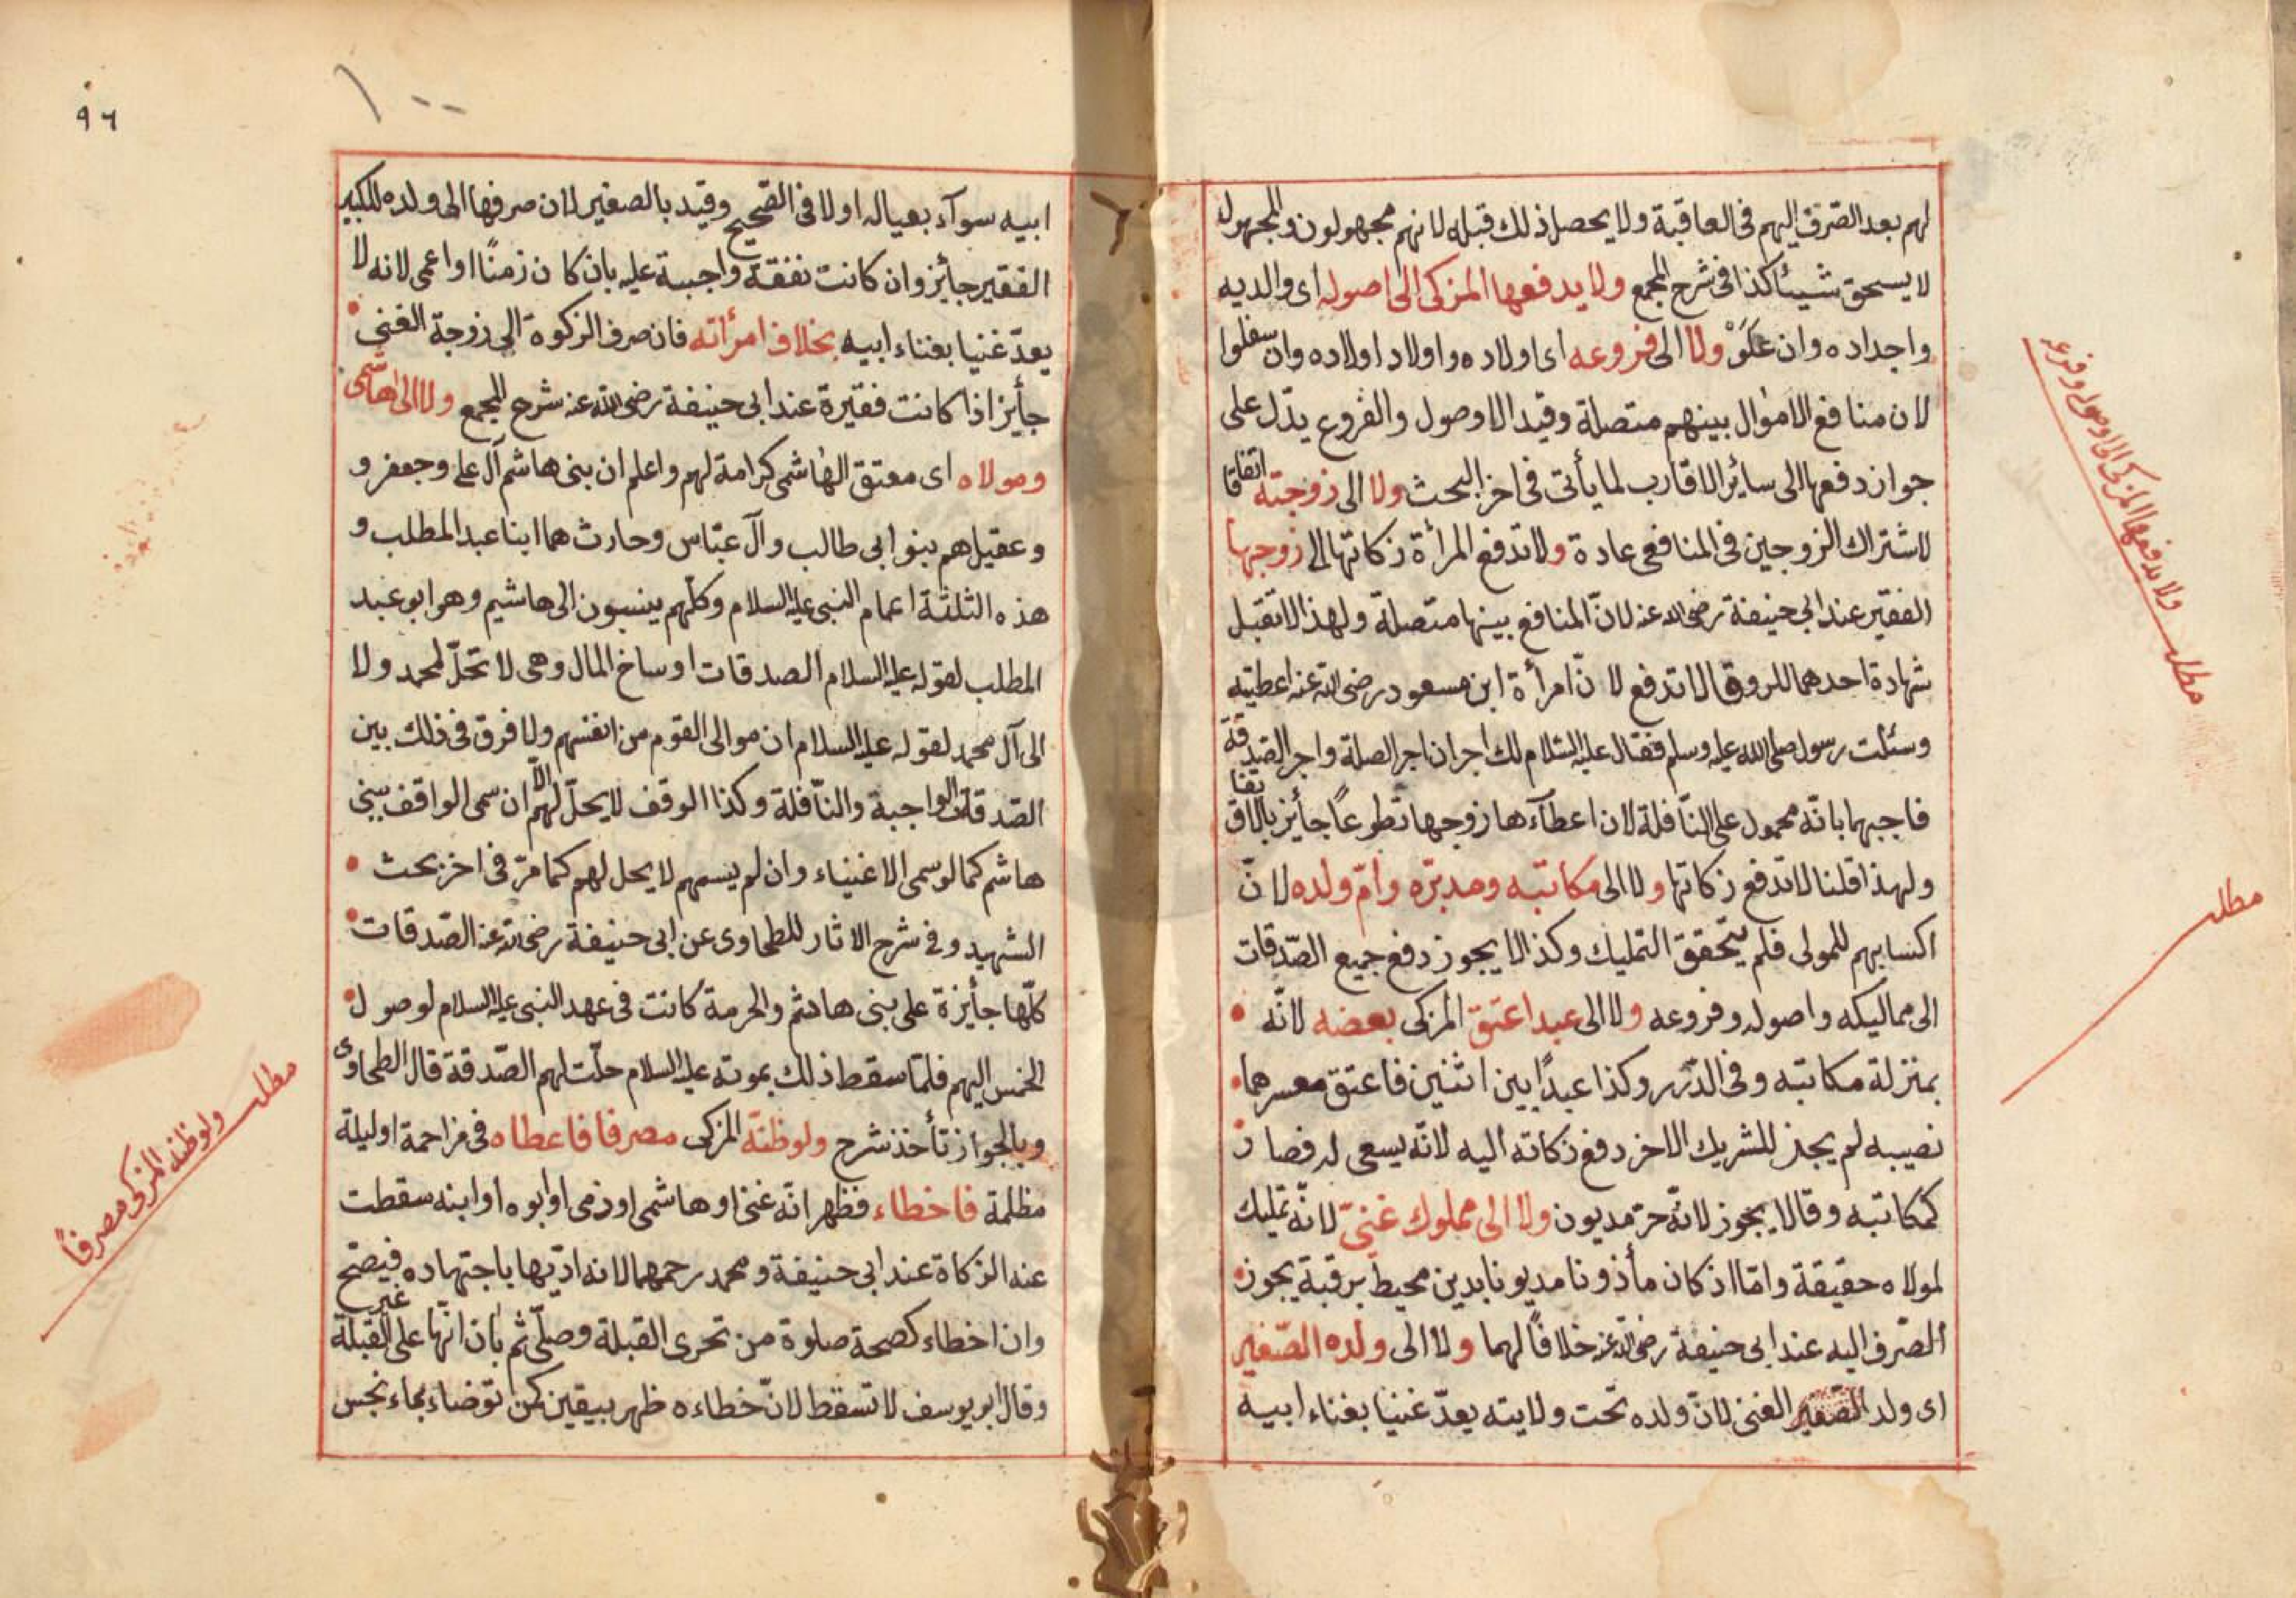 لهم بعد الصرف اليهم فى العاقبة ولا يحصل ذلك قبله لانهم مجهولون والمجهول
لا يسحق شيئا كذا فى شرح المجمع ولا يدفعها المزكى الى اصوله اى والديه
واجداده وان علوْ ولا الى فروعه اى اولاده واولاد اولاده وان سفلوا
لان منافع الاموال بينهم متصلة وقيد الاوصول والفروع يدّل على
جواز دفعها الى سائر الاقارب لما يأتى فى اخر البحث ولا الى زوجته اتفاقا
لاشتراك الزوجين فى المنافع عادة ولا تدفع المرأة زكاتها الى زوجها
الفقير عند ابى حنيفة رضى الله عنه لانّ المنافع بينها متصلة ولهذا لا تقبل
شهادة احدهما للر وقالا تدفع لا نّ امرأة ابن مسعود رضى الله عنه اعطيته
وسئلت رسول صلى الله عليه وسلم فقال عليه السّلام لك اجران اجر الصلة واجر الصّدقة
فاجبهما بانّه محمول على النّافلة لان اعطآءها زوجها تطوعاً جأيز بالاتفاق
ولهذا قلنا لا تدفع زكاتها ولا الى مكاتبه ومدبّره وامّ ولده لا نّ
اكسابهم للمولى فلم يتحقق التمليك وكذا لا يجوز دفع جميع الصّدقات
الى مماليكه واصوله وفروعه ولا الى عبد اعتق المزكى بعضه لانّه
بمنزلة مكاتبه وفى الدّرر وكذا عبدًا بين اثنين فاعتق معسرهما
نصيبه لم يجز للشريك الاخر دفع زكاته اليه لانّه يسعى له فصار
كمكاتبه وقالا يجوز لانّه حرّ مديون ولا الى مملوك غنىّ لانّه تمليك
لمولاه حقيقة وامّا اذ كان مأذونا مديونا بدين محيط برقبة يجوز
الصّرف اليه عند ابى حنيفة رضى الله عنه خلافاً لهما ولا الى ولده الصّغير
اى ولد الصّغير الغنى لانّ ولده تحت ولايته يعدّ غنيا بغناء ابيه
مطلب ولا يدفعها المزكى الى اوصوله وفروعه
مطلب
٩٦
١٠٠
ابيه سوآء بعياله اولا فى الصّحيح وقيد بالصغير لان صرفها الى ولده الكبير
الفقير جأيز وان كانت نفقة واجبة عليه بان كان زمنًا او اعمى لانه لا
يعدّ غنيا بغناء ابيه بخلاف امرأته فان صرف الزكوة الى زوجة الغنى
جأيز اذا كانت فقيرة عند ابى حنيفة رضى الله عنه شرح المجمع ولا الى هاشمى
ومولاه اى معتق الهاشمى كرامة لهم واعلم ان بنى هاشم آل على وجعفر و
وعقيل هم بنو ابى طالب وآل عبّاس وحارث هما ابنا عبد المطلب و
هذه الثلثة اعمام النبى عليه السلام وكلّهم ينسبون الى هاشيم وهو ابو عبد
المطلب لقوله عليه السلام الصدقات اوساخ المال وهى لا تحلّ لمحمد ولا
الى آل محمد لقوله عليه السلام ان موالى القوم من انفسهم ولا فرق فى ذلك بين
الصّدقات الواجبة والنّافلة وكذا الوقف لا يحلّ لهم الّا ان سمى الواقف بنى
هاشم كما لو سمى الاغنياء وان لم يسمهم لا يحل لهم كما مرّ فى اخر بحث
الشهيد وفى شرح الاثار للطحاوى عن ابى حنيفة رضى الله عنه الصّدقات
كلّها جأيزة على بنى هاشم والحرمة كانت فى عهد النبى عليه السلام لوصول
الخمس اليهم فلمّا سقط ذلك بموته عليه السلام حلّت لهم الصّدقة قال الطحاوى
وبالجواز نأخذ شرح ولو ظنّه المزكى مصرفا فاعطاه فى مزاحمة او ليلة
مظلمة فاخطاء فظهر انّه غنى او هاشمى او ذمى او ابوه او ابنه سقطت
عنه الزكاة عند ابى حنيفة ومحمد رحمهما لانه ادّيها باجتهاده فيصّح
وان اخطاء كصحة صلوة من تحرى القبلة وصلّى ثم بان انّها على غير القبلة
وقال ابو يوسف لا تسقط لانّ خطاءه ظهر بيقين كمن توضاء بماء نجس
مطلب ولو ظنه المزكى مصرفاً